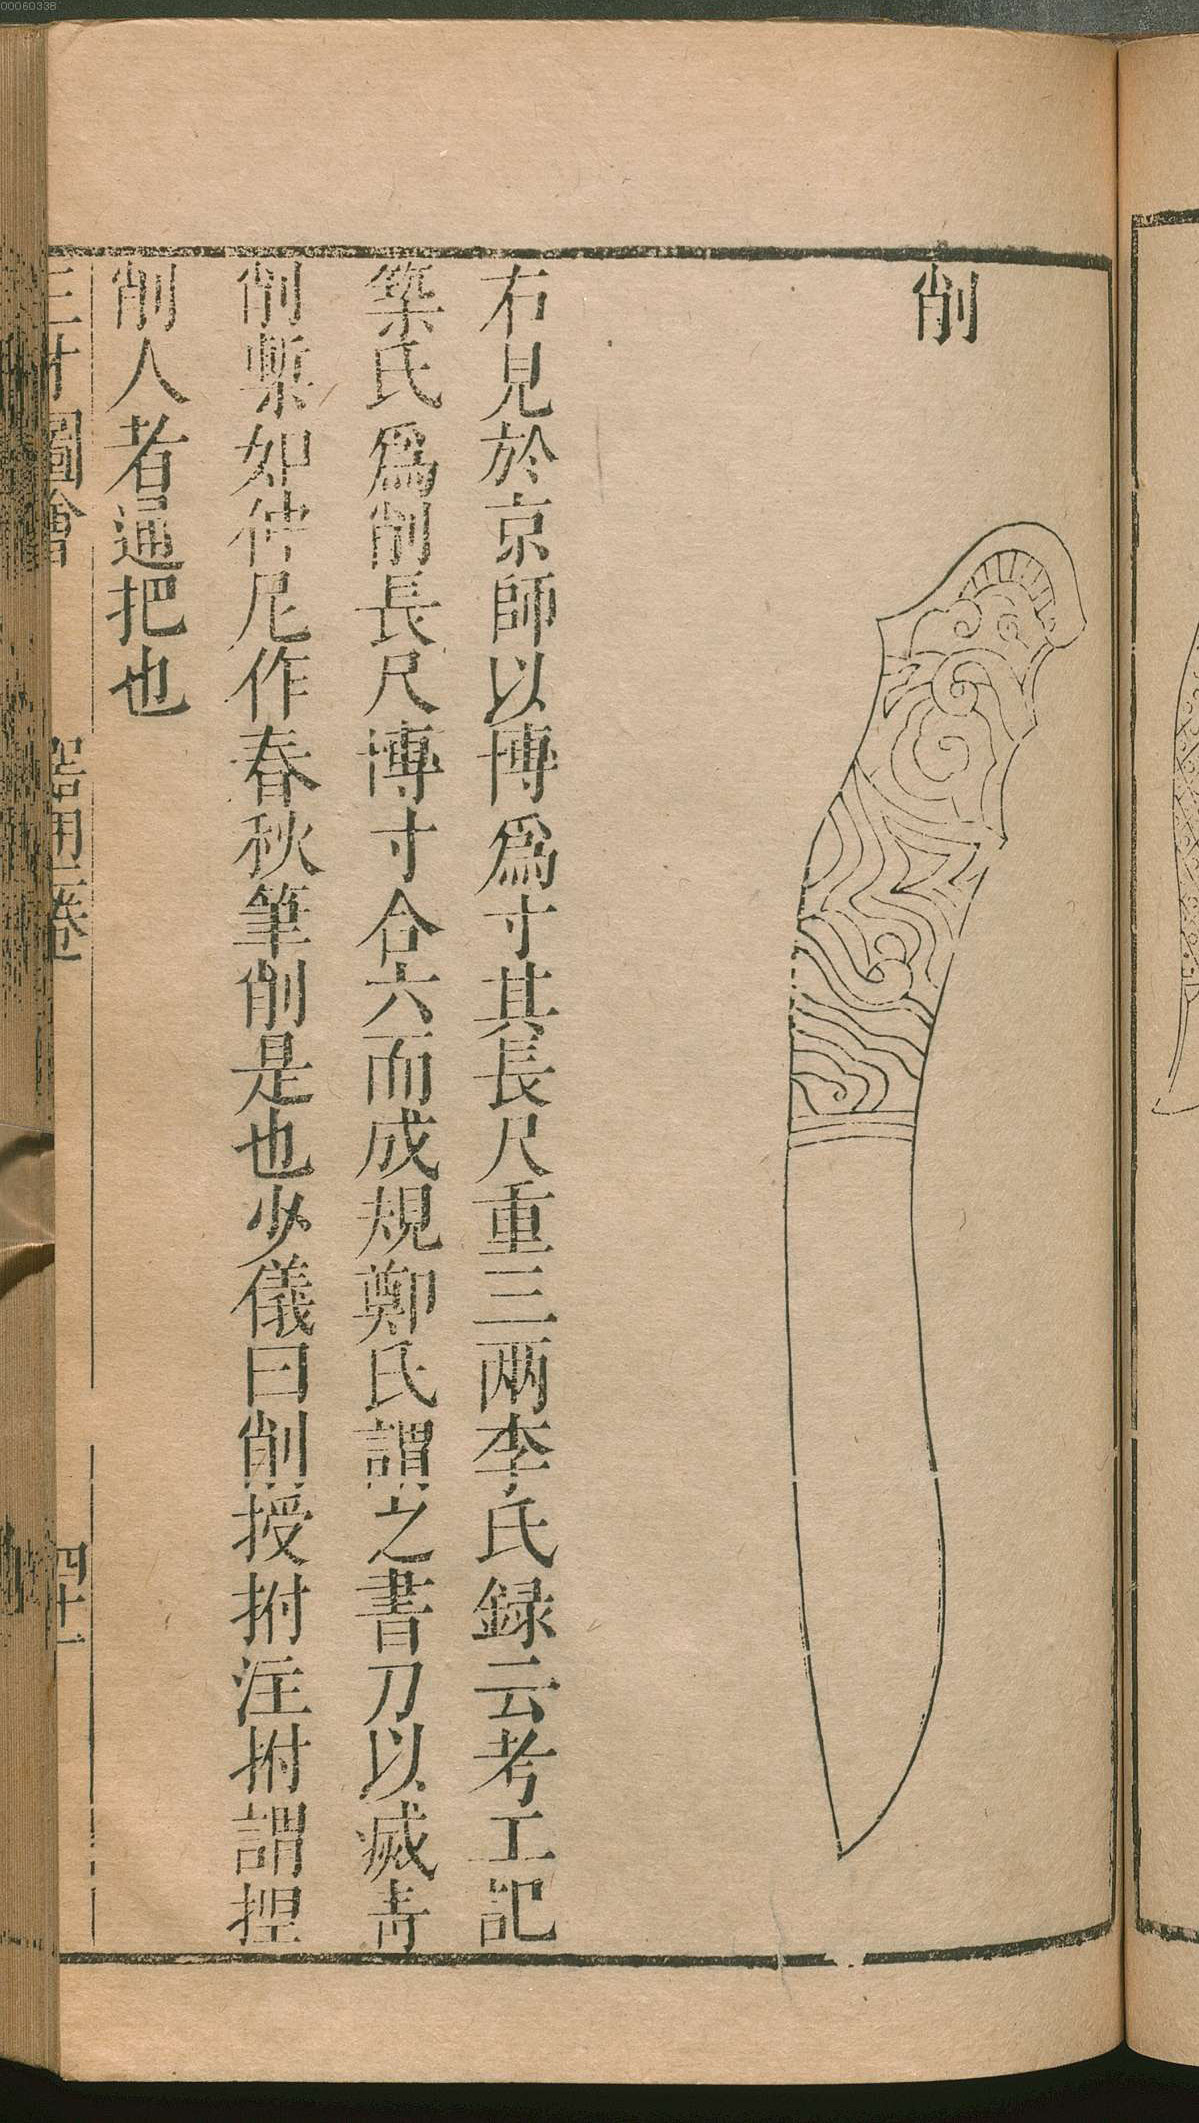 00060338
削
右見於京師以博爲寸其長尺重三兩李氏録云考工記
築氏爲削長尺博寸合六而成規鄭氏謂之書刀以滅青
削槧如仲尼作春秋筆削是也少儀曰削授拊注拊謂捏
削人者通把也
三才圖會
器用二卷
四十一